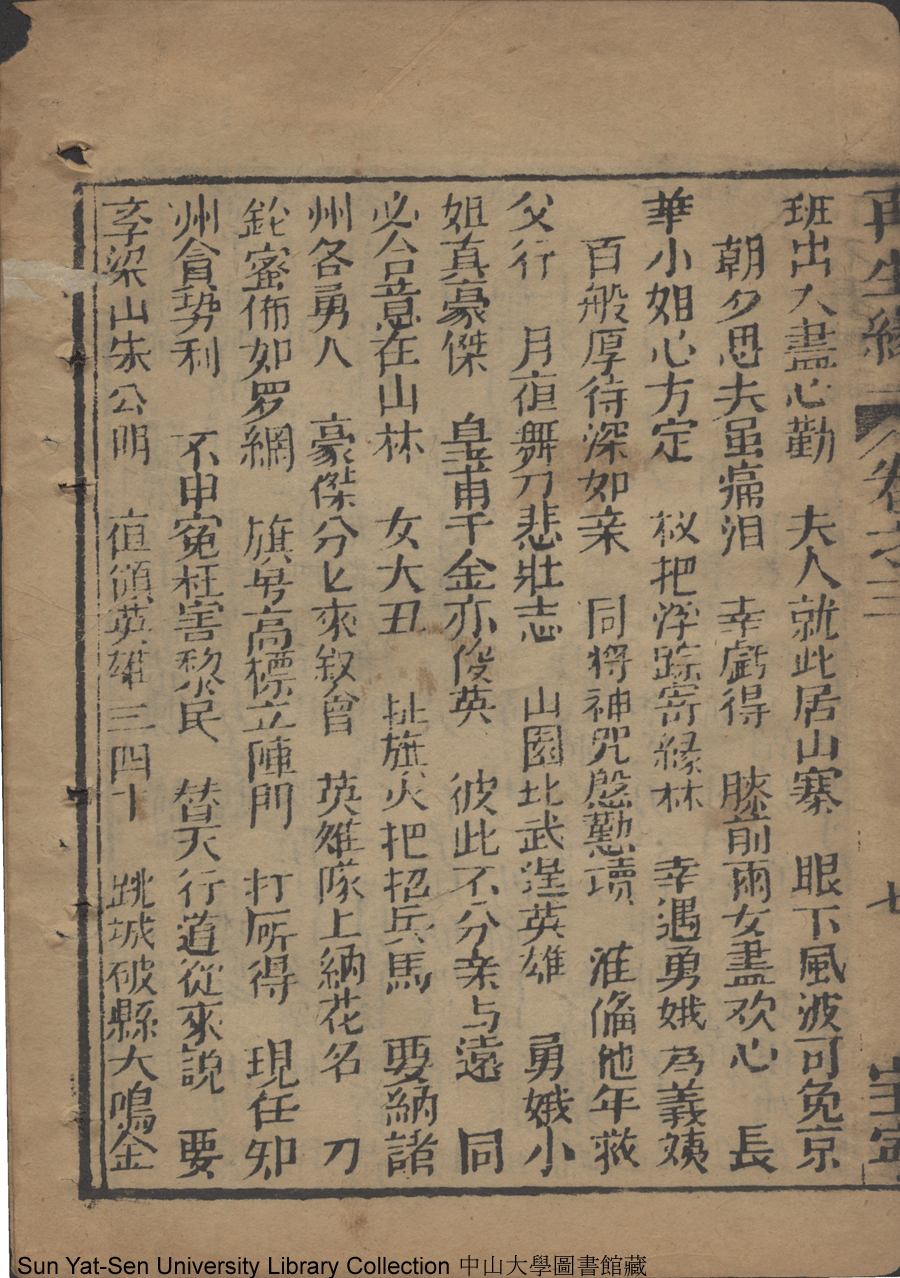 再生緣 卷之三 七
班出入盡心勤 夫人就此居山寨 眼下風波可免京
朝夕思夫虽痛泪 幸虧得 膝前兩女盡欢心 長
華小姐心方定 权把浮踪寄緑林 幸遇勇娥为義姨
百般厚待深如亲 同将神咒慇懃讀 准偹他年救
父行 月夜舞刀悲壯志 山園比武逞英雄 勇娥小
姐真豪傑 皇甫千金亦俊英 彼此不分亲与遠 同
必合意在山林 女大丑 扯旗火把招兵馬 要納諸
州各勇人 豪傑分匕來叙會 英雄隊上納花名 刀
鎗蜜佈如罗網 旗号高標立陣門 打听得 現任知
州貪勢利 不申寃枉害黎民 替天行道從來說 要
孝梁山朱公明 夜領英雄三四十 跳城破縣大鳴金
Sun Yat-Sen University Library Collection 中山大學圖書館藏